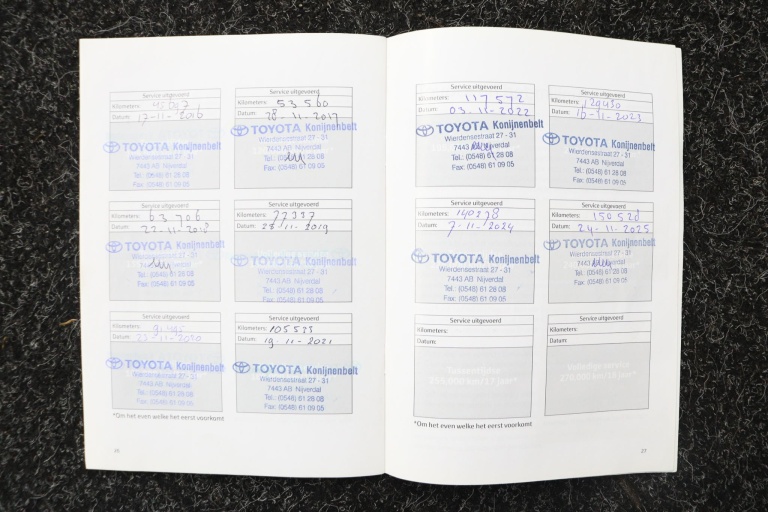 Service uitgevoerd
Kilometers:
Datum: 17-11-2016
TOYOTA Konijnenbelt
Wierdensestraat 27 - 31
7443 AB Nijverdal
Tel.: (0548) 61 28 08
Fax: (0548) 61 09 05
Service uitgevoerd
Kilometers: 53560
Datum: 28-11-2017
TOYOTA Konijnenbelt
Wierdensestraat 27 - 31
7443 AB Nijverdal
Tel.: (0548) 61 28 08
Fax: (0548) 61 09 05
Service uitgevoerd
Kilometers: 63706
Datum: 22-11-2018
TOYOTA Konijnenbelt
Wierdensestraat 27 - 31
7443 AB Nijverdal
Tel.: (0548) 61 28 08
Fax: (0548) 61 09 05
Service uitgevoerd
Kilometers:
Datum: 22-11-2019
TOYOTA Konijnenbelt
Wierdensestraat 27 - 31
7443 AB Nijverdal
Tel.: (0548) 61 28 08
Fax: (0548) 61 09 05
Service uitgevoerd
Kilometers:
Datum: 23-11-2020
TOYOTA Konijnenbelt
Wierdensestraat 27 - 31
7443 AB Nijverdal
Tel.: (0548) 61 28 08
Fax: (0548) 61 09 05
Service uitgevoerd
Kilometers: 105533
Datum: 19-11-2021
TOYOTA Konijnenbelt
Wierdensestraat 27 - 31
7443 AB Nijverdal
Tel.: (0548) 61 28 08
Fax: (0548) 61 09 05
*Om het even welke het eerst voorkomt
26
Service uitgevoerd
Kilometers: 117572
Datum: 03-11-2022
TOYOTA Konijnenbelt
Wierdensestraat 27 - 31
7443 AB Nijverdal
Tel.: (0548) 61 28 08
Fax: (0548) 61 09 05
Service uitgevoerd
Kilometers: 129450
Datum: 16-11-2023
TOYOTA Konijnenbelt
Wierdensestraat 27 - 31
7443 AB Nijverdal
Tel.: (0548) 61 28 08
Fax: (0548) 61 09 05
Service uitgevoerd
Kilometers: 140278
Datum: 7-11-2024
TOYOTA Konijnenbelt
Wierdensestraat 27 - 31
7443 AB Nijverdal
Tel.: (0548) 61 28 08
Fax: (0548) 61 09 05
Service uitgevoerd
Kilometers: 150528
Datum: 24-11-2025
TOYOTA Konijnenbelt
Wierdensestraat 27 - 31
7443 AB Nijverdal
Tel.: (0548) 61 28 08
Fax: (0548) 61 09 05
Service uitgevoerd
Kilometers:
Datum:
255.000 km/17 jaar*
Service uitgevoerd
Kilometers:
Datum:
Volledige service
270.000 km/18 jaar*
*Om het even welke het eerst voorkomt
27